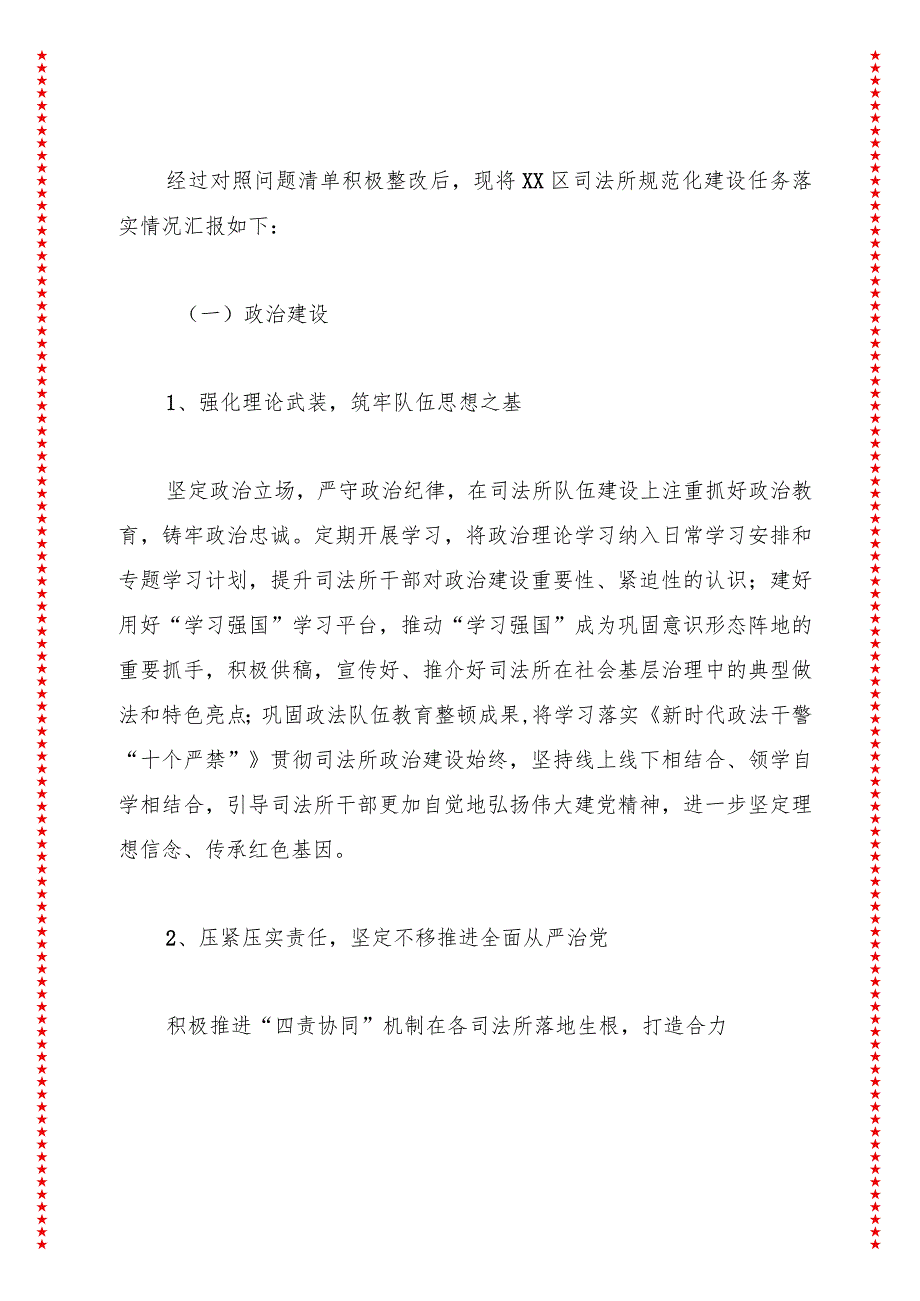 经过对照问题清单积极整改后，现将XX区司法所规范化建设任务落
实情况汇报如下：
（一）政治建设
1、强化理论武装，筑牢队伍思想之基
坚定政治立场，严守政治纪律，在司法所队伍建设上注重抓好政治教
育，铸牢政治忠诚。定期开展学习，将政治理论学习纳入日常学习安排和
专题学习计划，提升司法所干部对政治建设重要性、紧迫性的认识；建好
用好“学习强国”学习平台，推动“学习强国”成为巩固意识形态阵地的
重要抓手，积极供稿，宣传好、推介好司法所在社会基层治理中的典型做
法和特色亮点；巩固政法队伍教育整顿成果,将学习落实《新时代政法干警
“十个严禁”》贯彻司法所政治建设始终，坚持线上线下相结合、领学自
学相结合，引导司法所干部更加自觉地弘扬伟大建党精神，进一步坚定理
想信念、传承红色基因。
2、压紧压实责任，坚定不移推进全面从严治党
积极推进“四责协同”机制在各司法所落地生根，打造合力